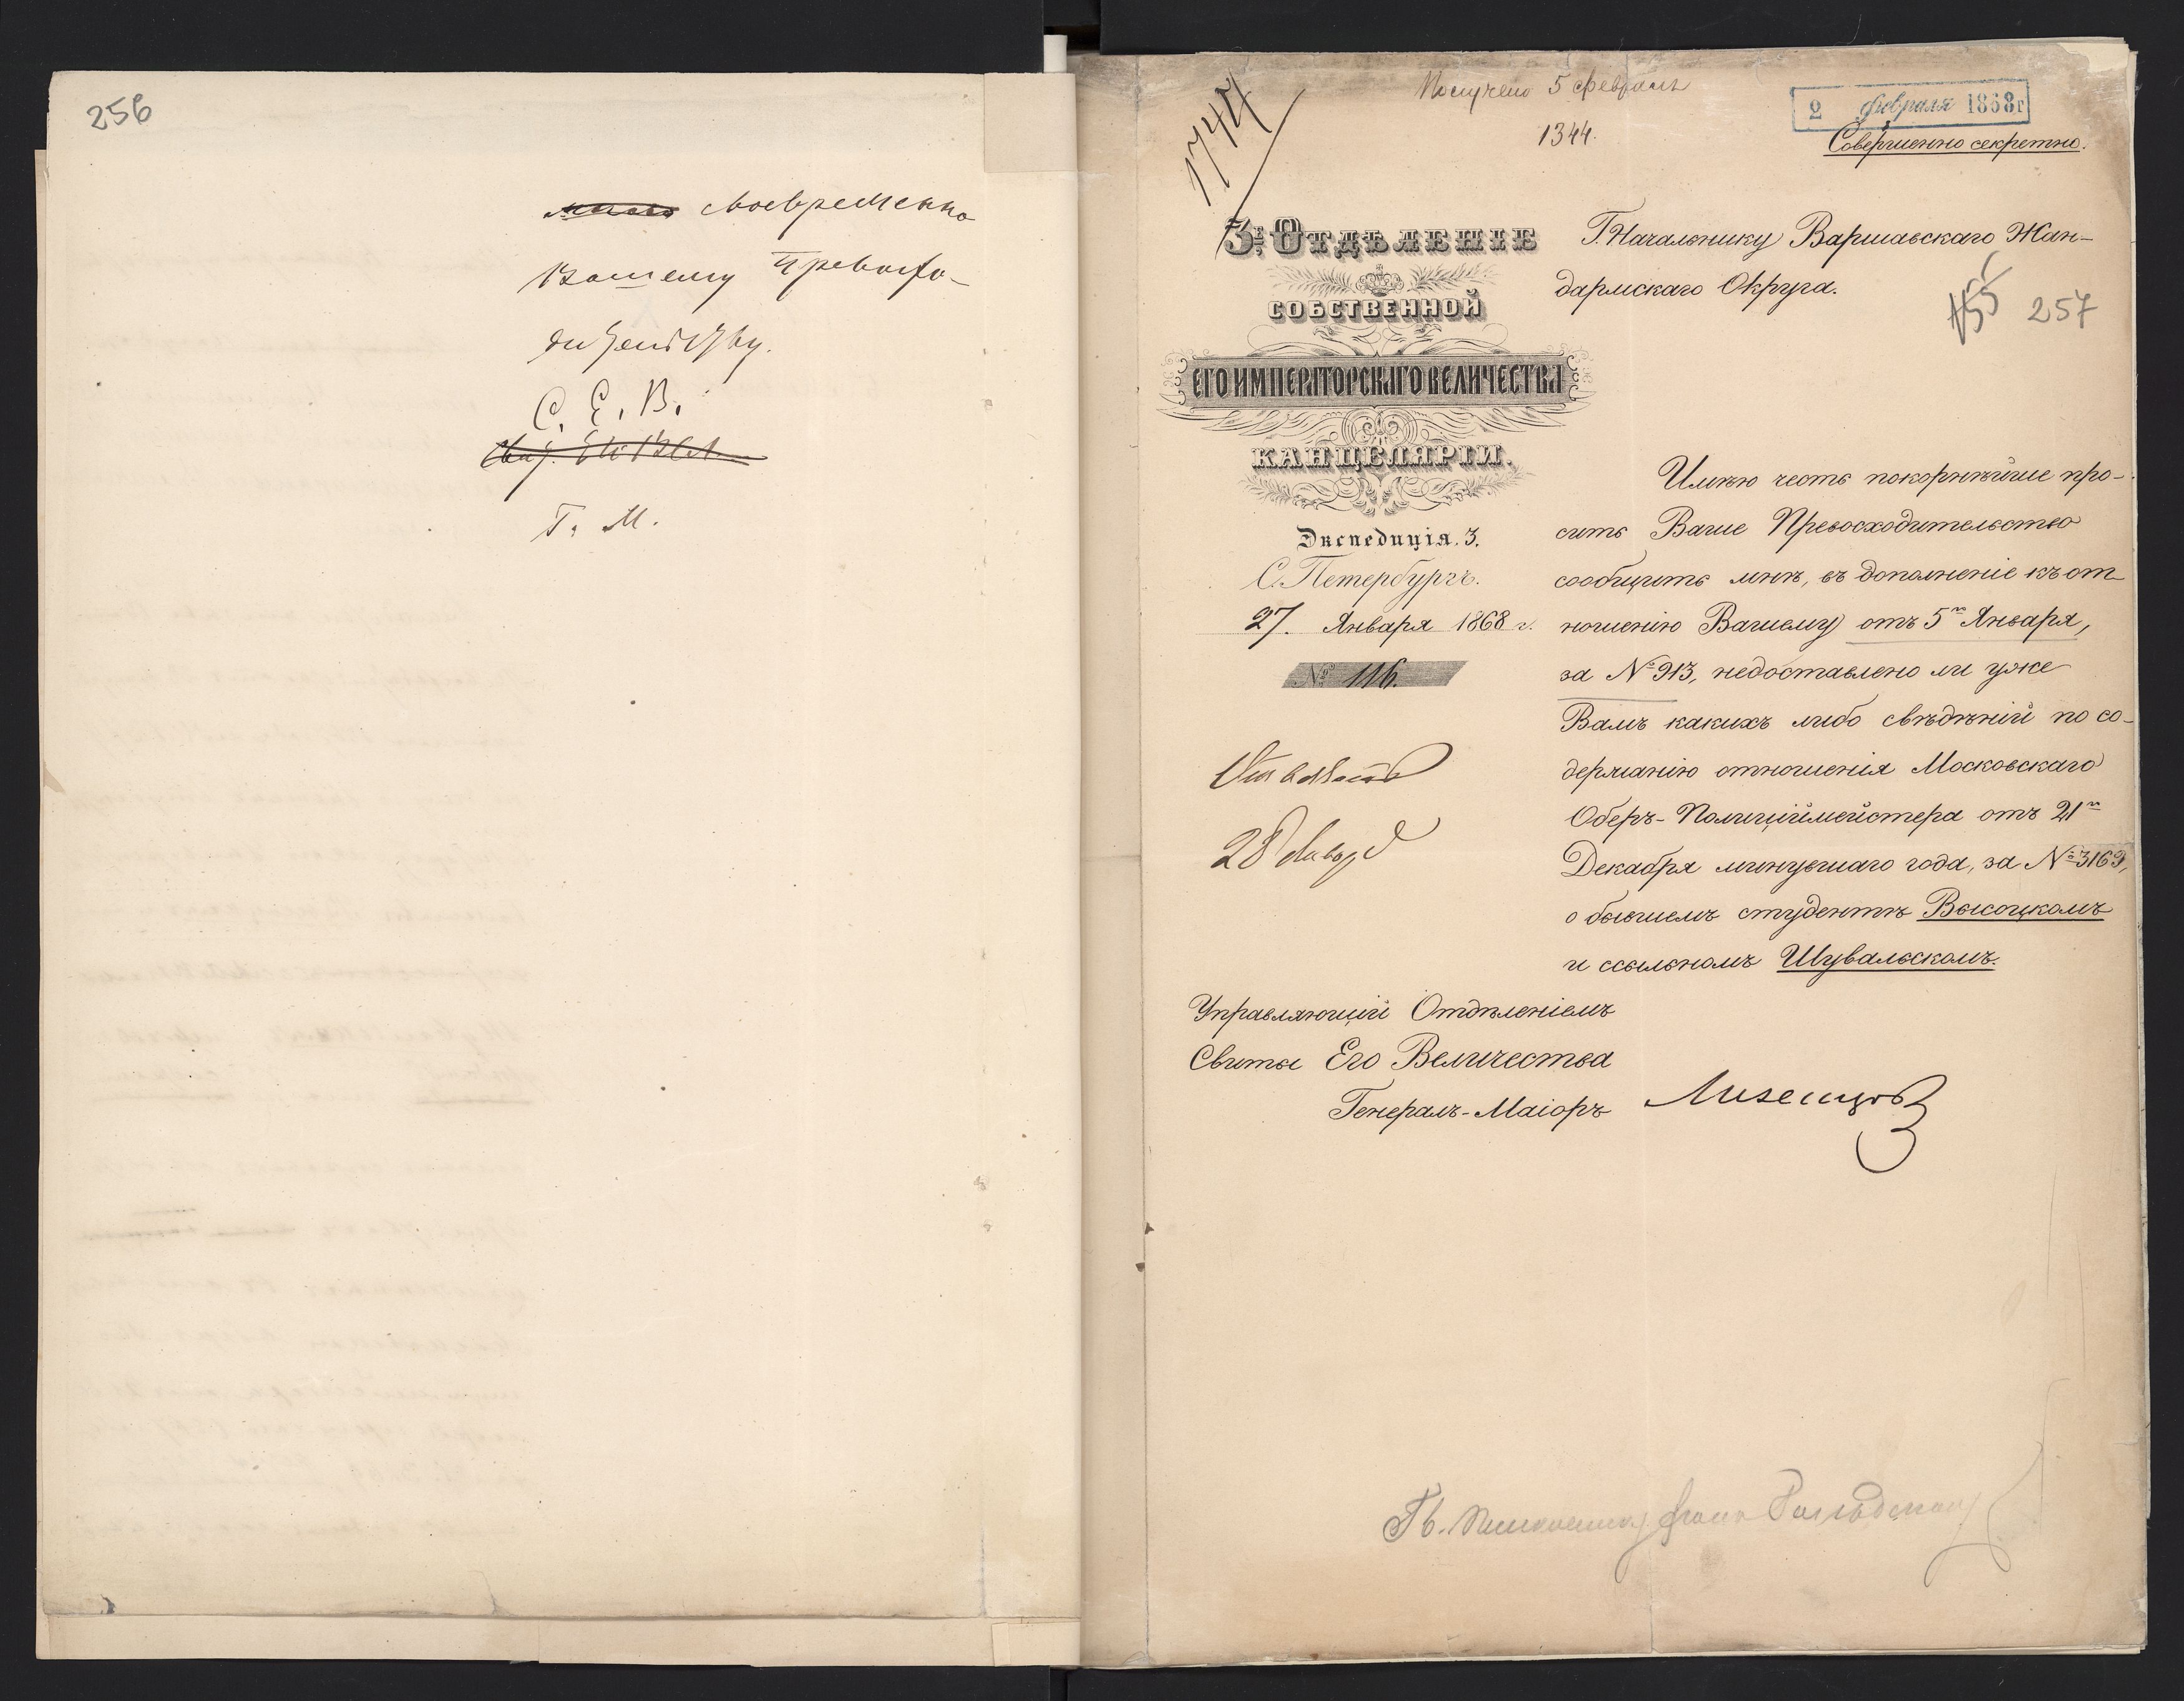 256
своевременно
Вашему Превосхо-
дительству.
С. Е. В.
Г. М.
1744
Получено 5 февраля
1344.
2 февраля 1868 г
Совершенно секретно.
3Е Отдѣленіе
СОБСТВЕННОЙ
ЕГО ИМПЕРАТОРСКАГО ВЕЛИЧЕСТВА
КАНЦЕЛЯРІИ.
Экспедиція. 3.
С. Петербургъ.
27. Января 1868 г.
№ 116.
28 Января
Г. Начальнику Варшавскаго Жан-
дармскаго Округа.
257
Имѣю честь покорнѣйше про-
сить Ваше Превосходительство
сообщить мнѣ, въ дополненіе къ от
ношенію Вашему отъ 5го Января,
за № 913, недоставлено ли уже
Вамъ какихъ либо свѣдѣній по со-
держанію отношенія Московскаго
Оберъ-Полиціймейстера отъ 21го
Декабря минувшаго года, за № 3163,
о бывшемъ студентѣ Высоцкомъ
и ссыльномъ Шувальскомъ.
Управляющій Отдѣленіемъ
Свиты Его Величества
Генералъ-Маіоръ Мезенцовъ